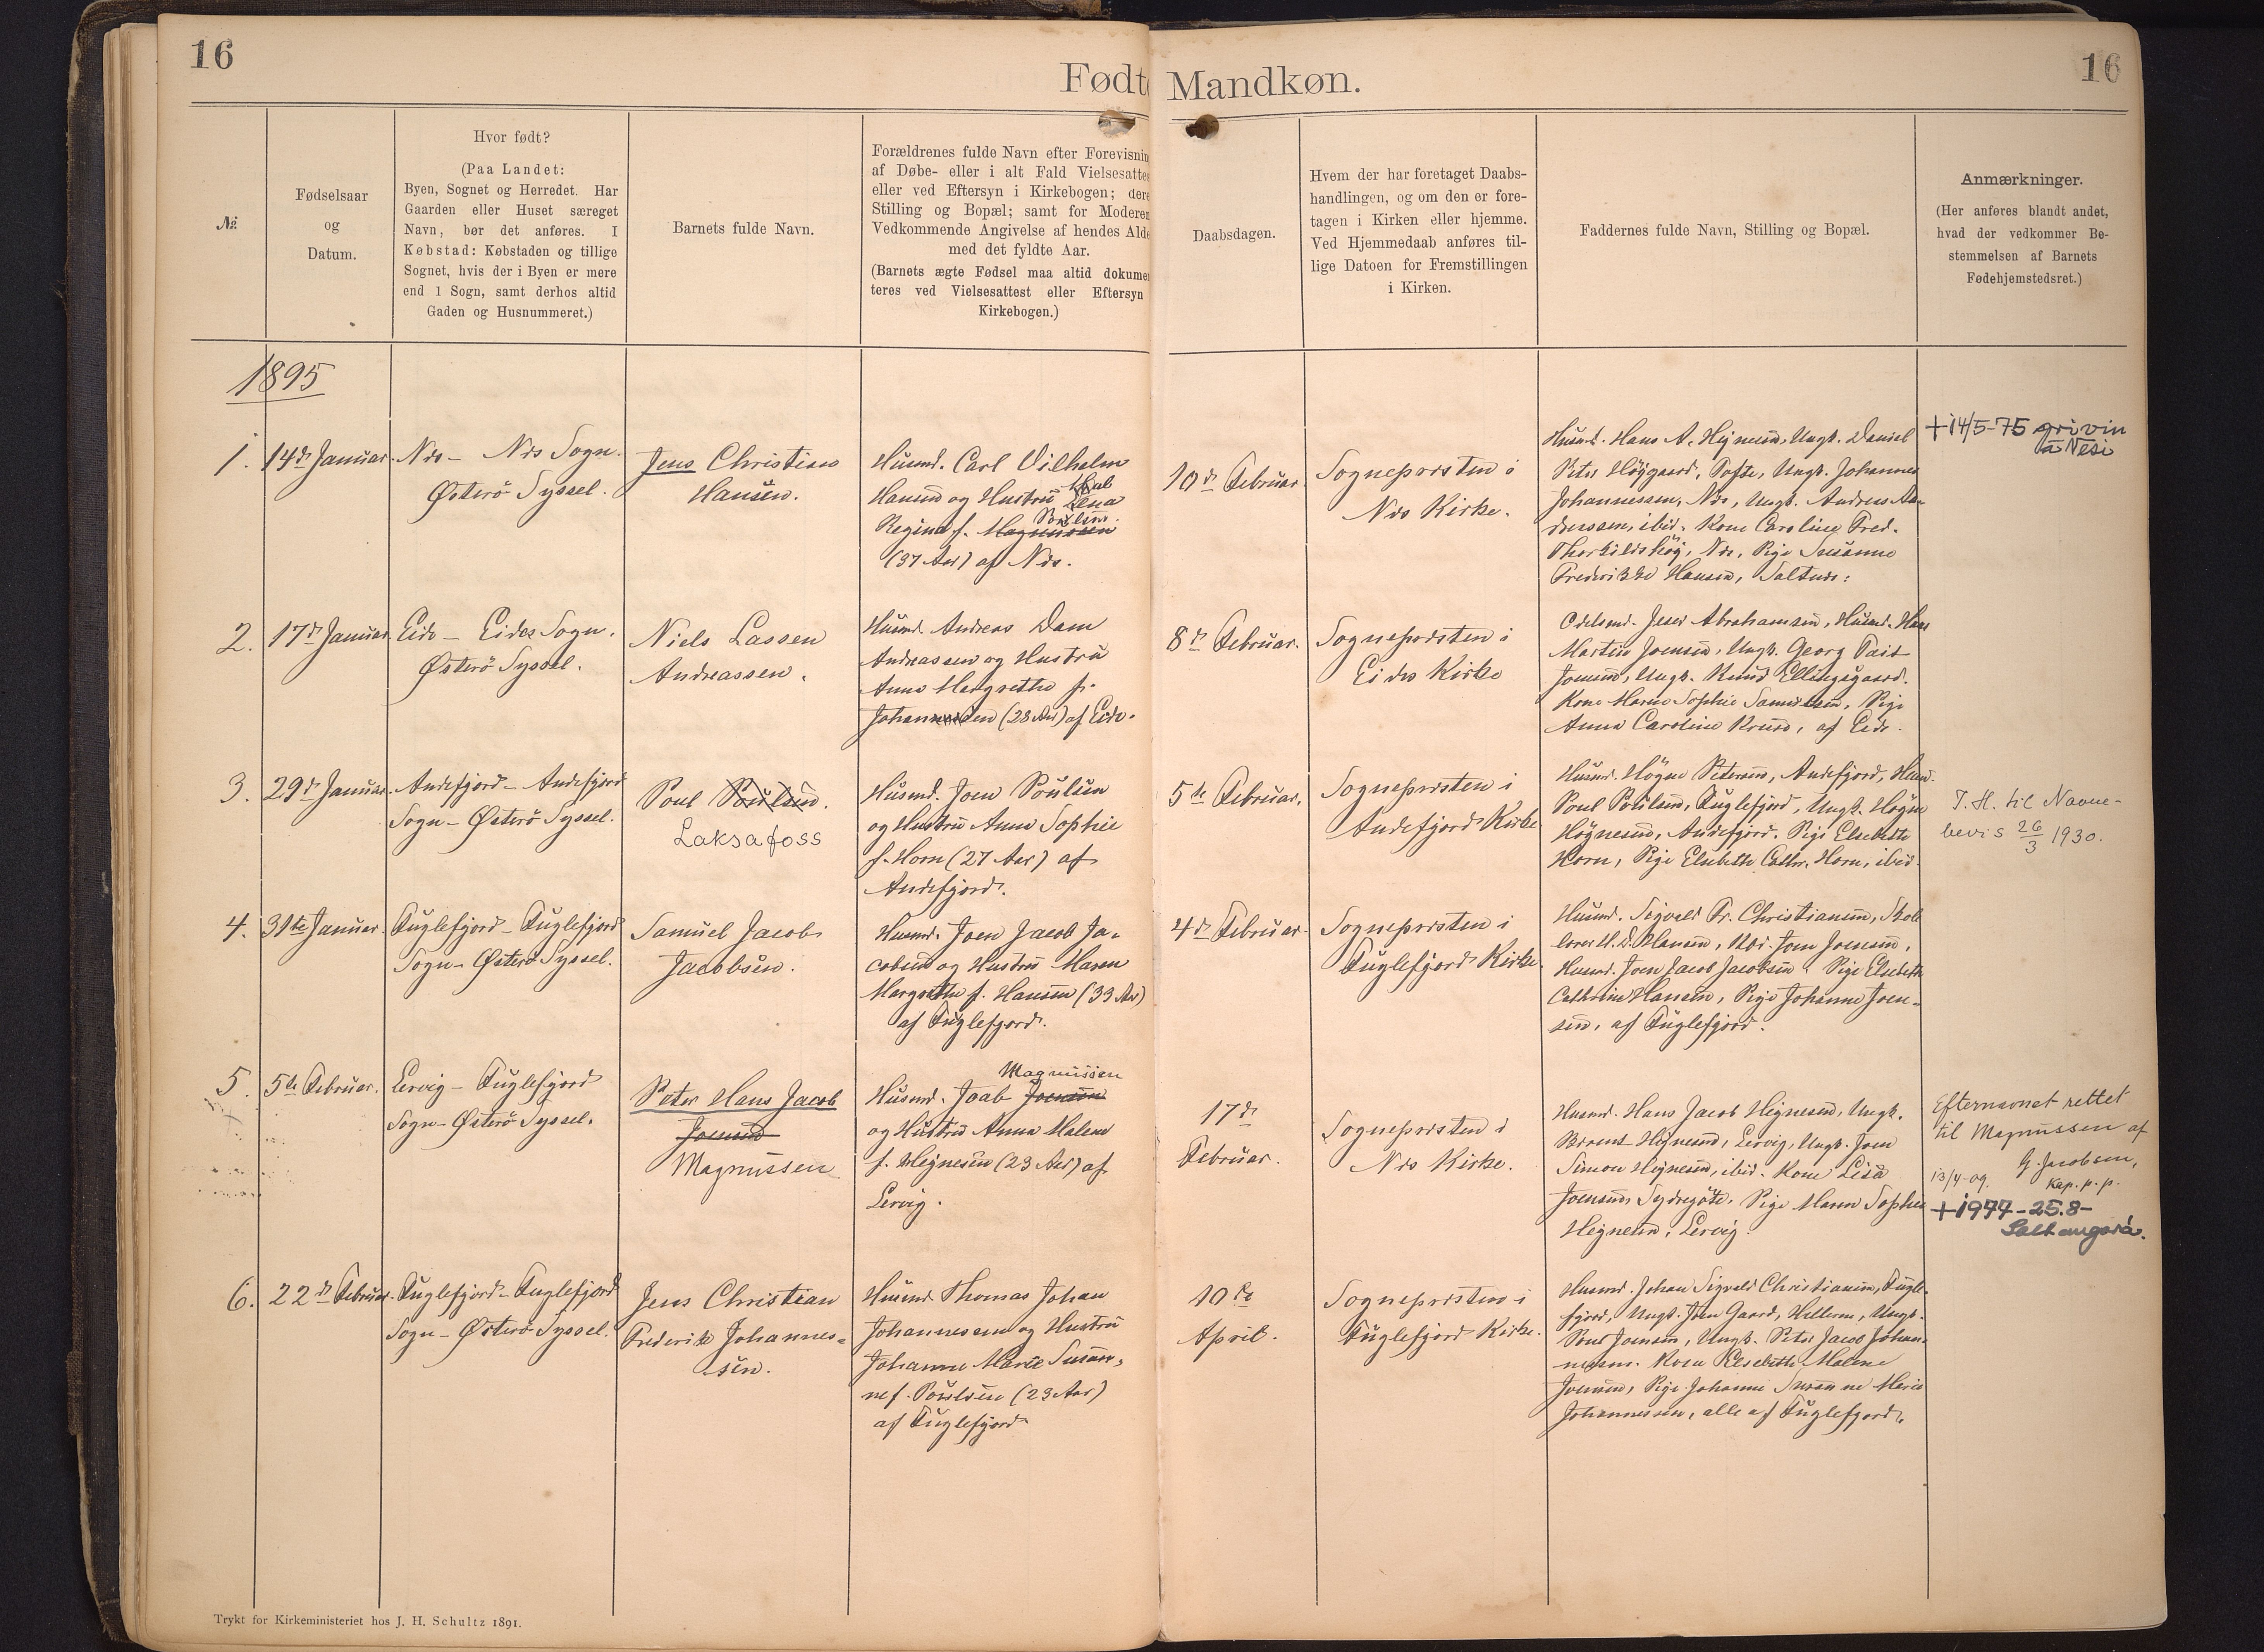 16
Fødte
Mandkøn.
16
№
Fødselsaar
og
Datum.
Hvor født?
(Paa Landet:
Byen, Sognet og Herredet. Har
Gaarden eller Huset særeget
Navn, bør det anføres. I
Købstad: Købstaden og tillige
Sognet, hvis der i Byen er mere
end 1 Sogn, samt derhos altid
Gaden og Husnummeret.)
Barnets fulde Navn.
Forældrenes fulde Navn efter Forevisnin
af Døbe- eller i alt Fald Vielsesatte
eller ved Eftersyn i Kirkebogen; dere
Stilling og Bopæl; samt for Moderen
Vedkommende Angivelse af hendes Alde
med det fyldte Aar.
(Barnets ægte Fødsel maa altid dokume
teres ved Vielsesattest eller Eftersyn
Kirkebogen.)
Daabsdagen.
Hvem der har foretaget Daabs-
handlingen, og om den er fore-
tagen i Kirken eller hjemme.
Ved Hjemmedaab anføres til-
lige Datoen for Fremstillingen
i Kirken.
Faddernes fulde Navn, Stilling og Bopæl.
Anmærkninger.
(Her anføres blandt andet,
hvad der vedkommer Be-
stemmelsen af Barnets
Fødehjemstedsret.)
1895
1.
14de Januar.
Nes - Nes Sogn.
Østerö Syssel.
Jens Christian
Hansen.
Husmd. Carl Vilhelm
Hansen og Hustru
Lena
Poulsen.
Regina f. Magnussen
(37 Aar) af Nes.
10de Februar
Sognepræsten i
Nes Kirke.
Husmd. Hans A. Hejnesen, Ungk. Daniel
Peter Höjgaard, Tofte, Ungk. Johannes
Johannessen, Nes, Ungk. Andreas An-
dreassen, ibid. Kone Caroline Fred.
Thorkildshöj, Nes, Pige Susanne
Frederikke Hansen, Saltnes:
+14/5-75 grivin
á Nesi
2.
17de Januar
Eide - Eides Sogn.
Østerö Syssel.
Niels Lassen
Andreassen.
Husmd. Andreas Dam
Andreassen og Hustru
Anna Margrethe f.
Johannessen (28 Aar) af Eide.
8de Februar.
Sognepræsten i
Eides Kirke
Odelsmd. Jens Abrahamsen, Husmd. Hans
Martin Joensen, Ungk. Georg Tait
Joensen, Ungk. Knud Ellingsgaard.
Kone Maren Sophie Samuelsen, Pige
Anna Caroline Kruse, af Eide.
3.
29de Januar.
Andefjord - Andefjord
Sogn - Østerö Syssel.
Poul Poulsen.
Laksafoss
Husmd. Joen Poulsen
og Hustru Anna Sophie
f. Horn (27 Aar) af
Andefjord.
5te Februar.
Sognepræsten i
Andefjord Kirke
Husmd. Högne Petersen, Andefjord, Husmd.
Poul Poulsen, Fuglefjord, Ungk. Högne
Högnesen, Andefjord. Pige Elsebeth
Horn, Pige Elsebeth Cathr. Horn, ibid.
J. H. til Navne-
bevis 26/3 1930.
4.
31te Januar.
Fuglefjord - Fuglefjord
Sogn - Østerö Syssel.
Samuel Jacob
Jacobsen.
Husmd. Joen Jacob Ja-
cobsen og Hustru Maren
Margrethe f. Hansen (33 Aar)
af Fuglefjord.
4de Februar
Sognepræsten i
Fuglefjord Kirke.
Husmd. Sigvald Fr. Christiansen, Skole
lærer D. Hansen, Joen Joensen,
Husmd. Joen Jacob Jacobsen. Pige Elsebeth
Cathrine Hansen, Pige Johanne Joen-
sen, af Fuglefjord.
5.
5te Februar.
Lervig - Fuglefjord
Sogn - Østerö Syssel.
Peter Hans Jacob
Joensen
Magnussen
Magnussen
Husmd. Joab Joensen
og Hustru Anna Malene
f. Hejnesen (23 Aar) af
Lervig.
17de
Februar.
Sognepræsten i
Nes Kirke.
Husmd. Hans Jacob Hejnesen, Ungk.
Berent Hejnesen, Lervig, Ungk. Joen
Simon Hejnesen, ibid. Kone Lisa
Joensen, Sydregöte. Pige Maren Sophie
Hejnesen, Lervig.
Efternavnet rettet
til Magnussen af
G. Jacobsen,
13/4-09. Kap. p. p.
+1977-25.8-
Saltangará.
6.
22de Februar.
Fuglefjord - Fuglefjord
Sogn - Østerö Syssel.
Jens Christian
Frederik Johannes-
sen.
Husmd. Thomas Johan
Johannessen og Hustru
Johanne Marie Susan-
ne f. Poulsen (23 Aar)
af Fuglefjord
10de
April.
Sognepræsten i
Fuglefjord Kirke.
Husmd. Johan Sigvald Christiansen, Fugle-
fjord, Ungk. Joen Gaard, Hellerne, Ungk.
Poul Joensen, Ungk. Peter Jacob Johan-
nessen. Kone Elsebeth Malene
Joensen, Pige Johanne Susanne Marie
Johannessen, alle af Fuglefjord.
Trykt for Kirkeministeriet hos J. H. Schultz 1891.